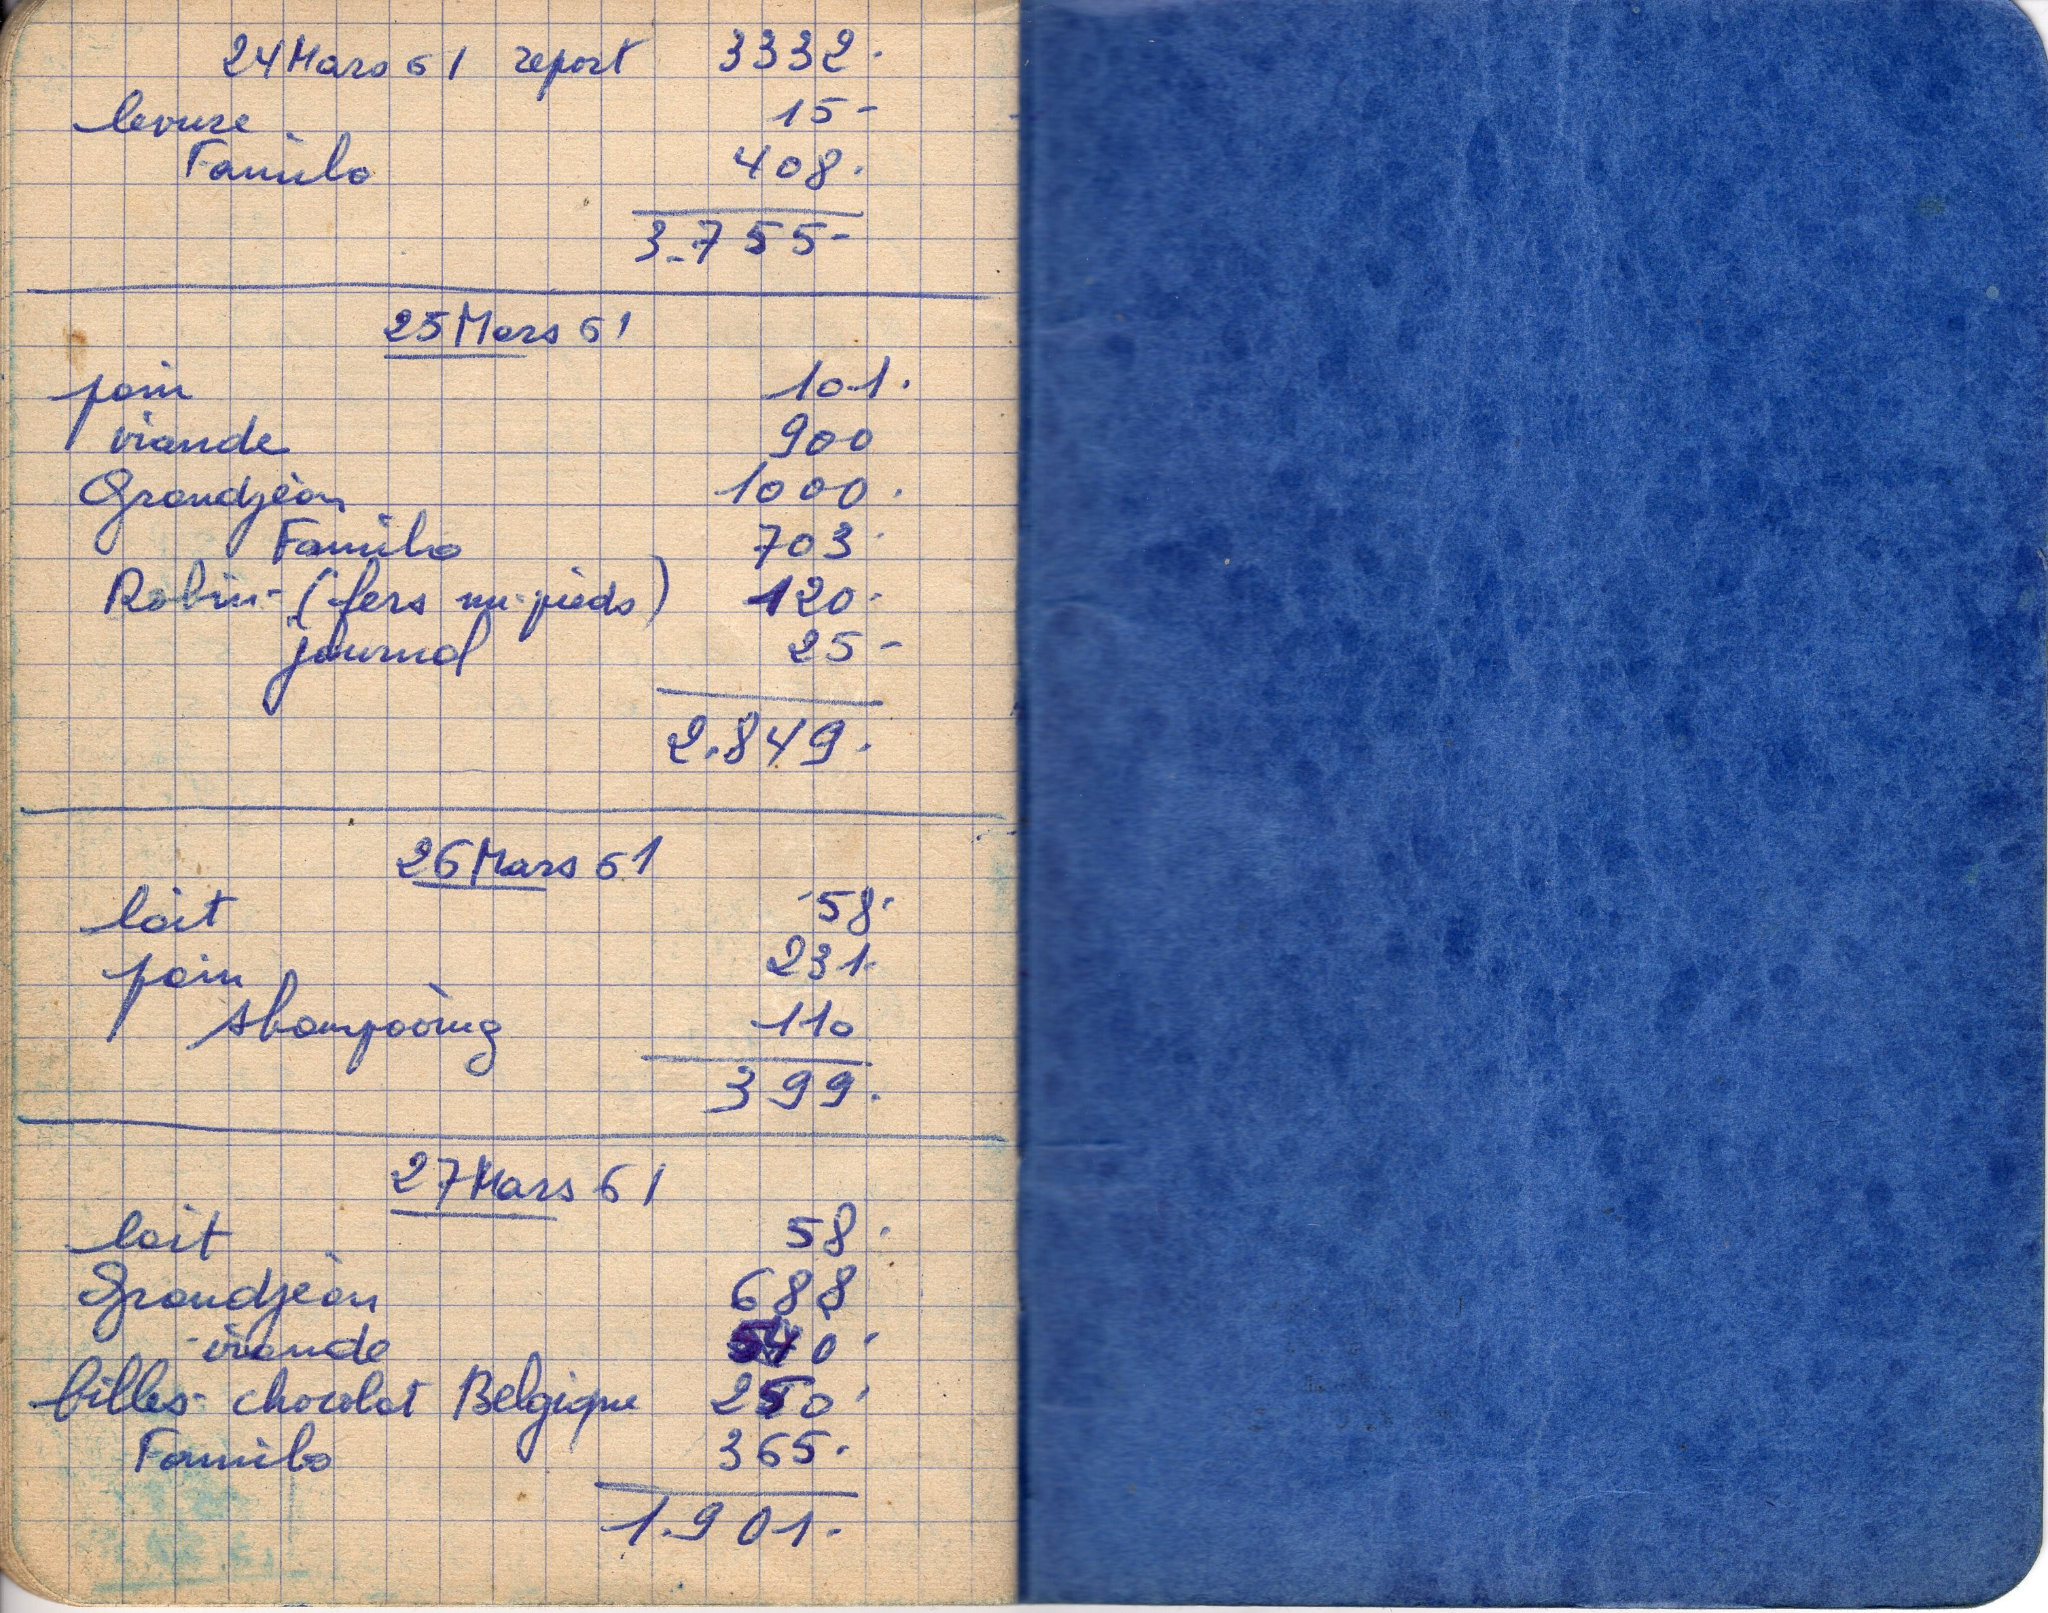 24 Mars 61 report 3332.
levure 15-
Familo 408.
3.755-
25 Mars 61
pain 101.
viande 900
Grandjean 1000.
Familo 703.
Robin-(fers nu-pieds) 120.
journal 25-
2.849.
26 Mars 61
lait 58.
pain 231.
shampooing 110
399.
27 Mars 61
lait 58.
Grandjean 688
viande 540.
billes-chocolat Belgique 250.
Familo 365.
1.901.